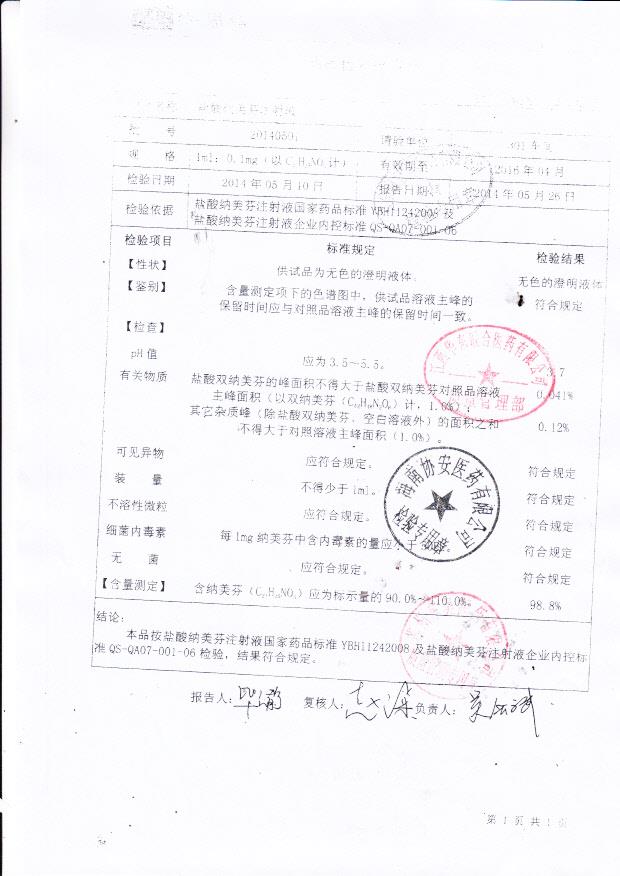 名称 盐酸纳美芬注射液
批 号 20140501 请验单位 301车间
规 格 1ml：0.1mg（以C₂₁H₂₅NO₃计） 有效期至 2016年04月
检验日期 2014年05月10日 报告日期 2014年05月26日
检验依据 盐酸纳美芬注射液国家药品标准YBH11242008及
盐酸纳美芬注射液企业内控标准QS-QA07-001-06
检验项目 标准规定 检验结果
【性状】 供试品为无色的澄明液体。 无色的澄明液体
【鉴别】 含量测定项下的色谱图中，供试品溶液主峰的
保留时间应与对照品溶液主峰的保留时间一致。 符合规定
【检查】
pH值 应为3.5~5.5。
有关物质 盐酸双纳美芬的峰面积不得大于盐酸双纳美芬对照品溶液 0.041%
主峰面积（以双纳美芬计，1.0%）；
其它杂质峰（除盐酸双纳美芬、空白溶液外）的面积之和 0.12%
不得大于对照溶液主峰面积（1.0%）。
可见异物 应符合规定。 符合规定
装 量 不得少于1ml。 符合规定
不溶性微粒 应符合规定。 符合规定
细菌内毒素 每1mg纳美芬中含内毒素的量应小于 符合规定
无 菌 应符合规定。 符合规定
【含量测定】 含纳美芬（C₂₁H₂₅NO₃）应为标示量的90.0%~110.0%。 98.8%
结论：
本品按盐酸纳美芬注射液国家药品标准YBH11242008及盐酸纳美芬注射液企业内控标
准QS-QA07-001-06检验，结果符合规定。
报告人： 复核人： 负责人：
协安医药有限公司
检验专用章
联合医药有限公司
管理部
第 1 页 共 1 页